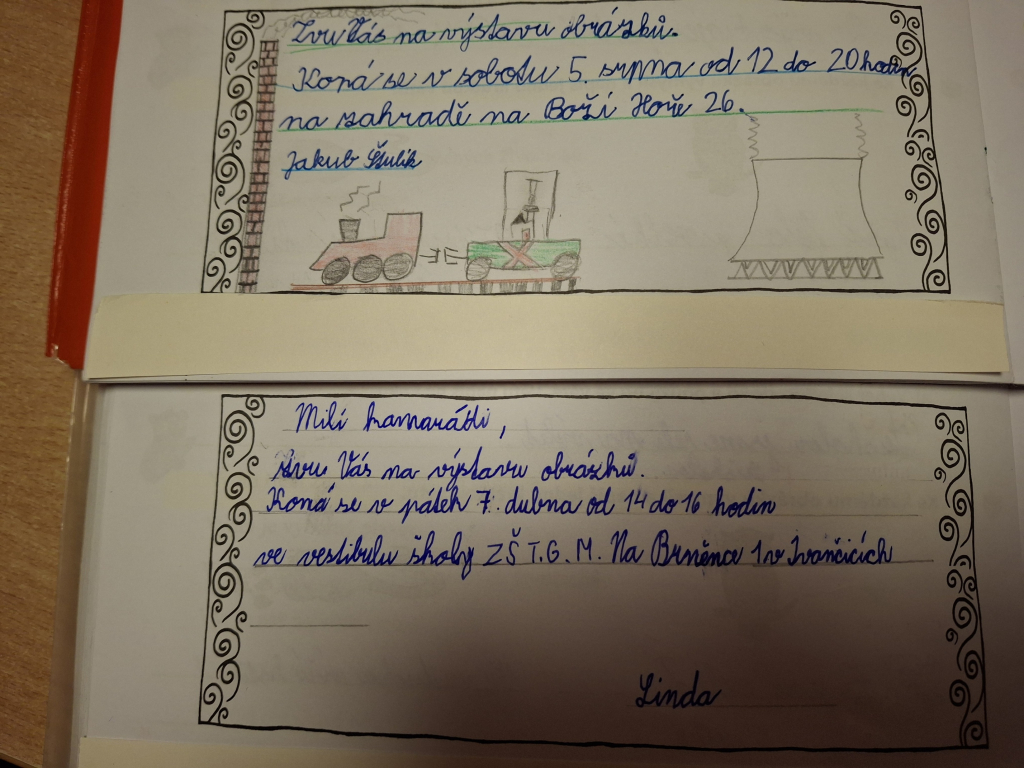 Zvu Vás na výstavu obrázků.
Koná se v sobotu 5. srpna od 12 do 20 hodin
na zahradě na Boží Hoře 26.
Jakub Štulík
Milí kamarádi,
zvu Vás na výstavu obrázků.
Koná se v pátek 7. dubna od 14 do 16 hodin
ve vestibulu školy ZŠ T.G.M. Na Brněnce 1 v Ivančicích
Linda